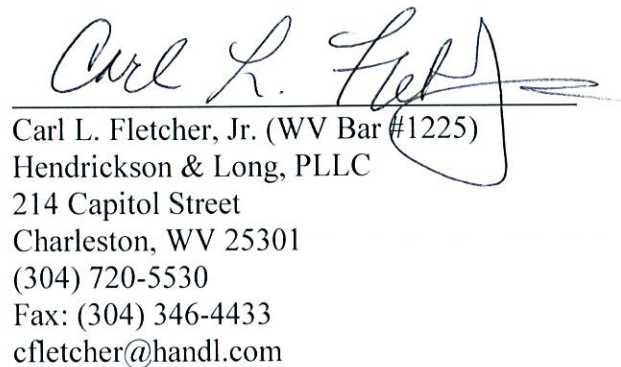 Carl L. Fletcher
Carl L. Fletcher, Jr. (WV Bar #1225)
Hendrickson & Long, PLLC
214 Capitol Street
Charleston, WV 25301
(304) 720-5530
Fax: (304) 346-4433
cfletcher@handl.com